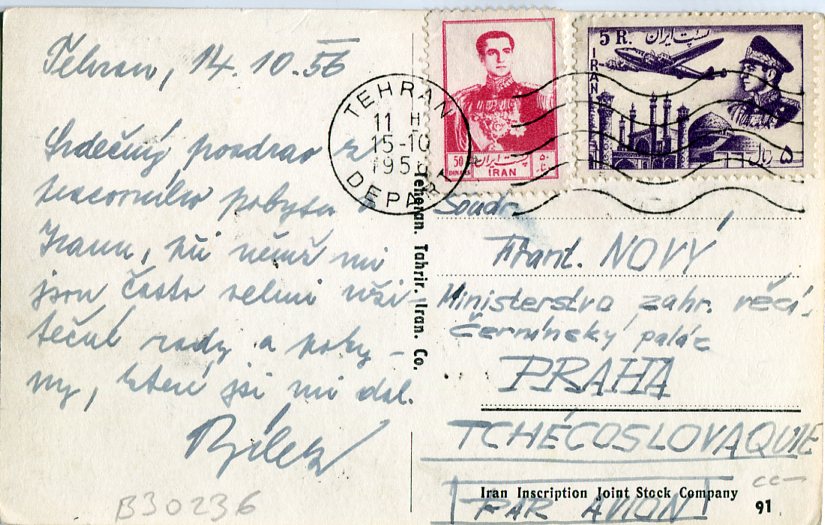 Tehran, 14.10.56
Srdečný pozdrav z
pobytu v
Iranu, při němž mi
jsou často velmi uži-
tečné rady a poky-
ny, které jsi mi dal.
TEHRAN
11 H
15-10
195
DEPART
50
DINARS
پست ایران
IRAN
۵۰
5 R.
پست ایران
IRAN
۵ ریال
Teheran. Tahrir. Iran. Co.
Soudr.
Frant. NOVÝ
Ministerstvo zahr. věcí.
Černínský palác
PRAHA
TCHÉCOSLOVAQUIE
PAR AVION
Iran Inscription Joint Stock Company
91
B30236